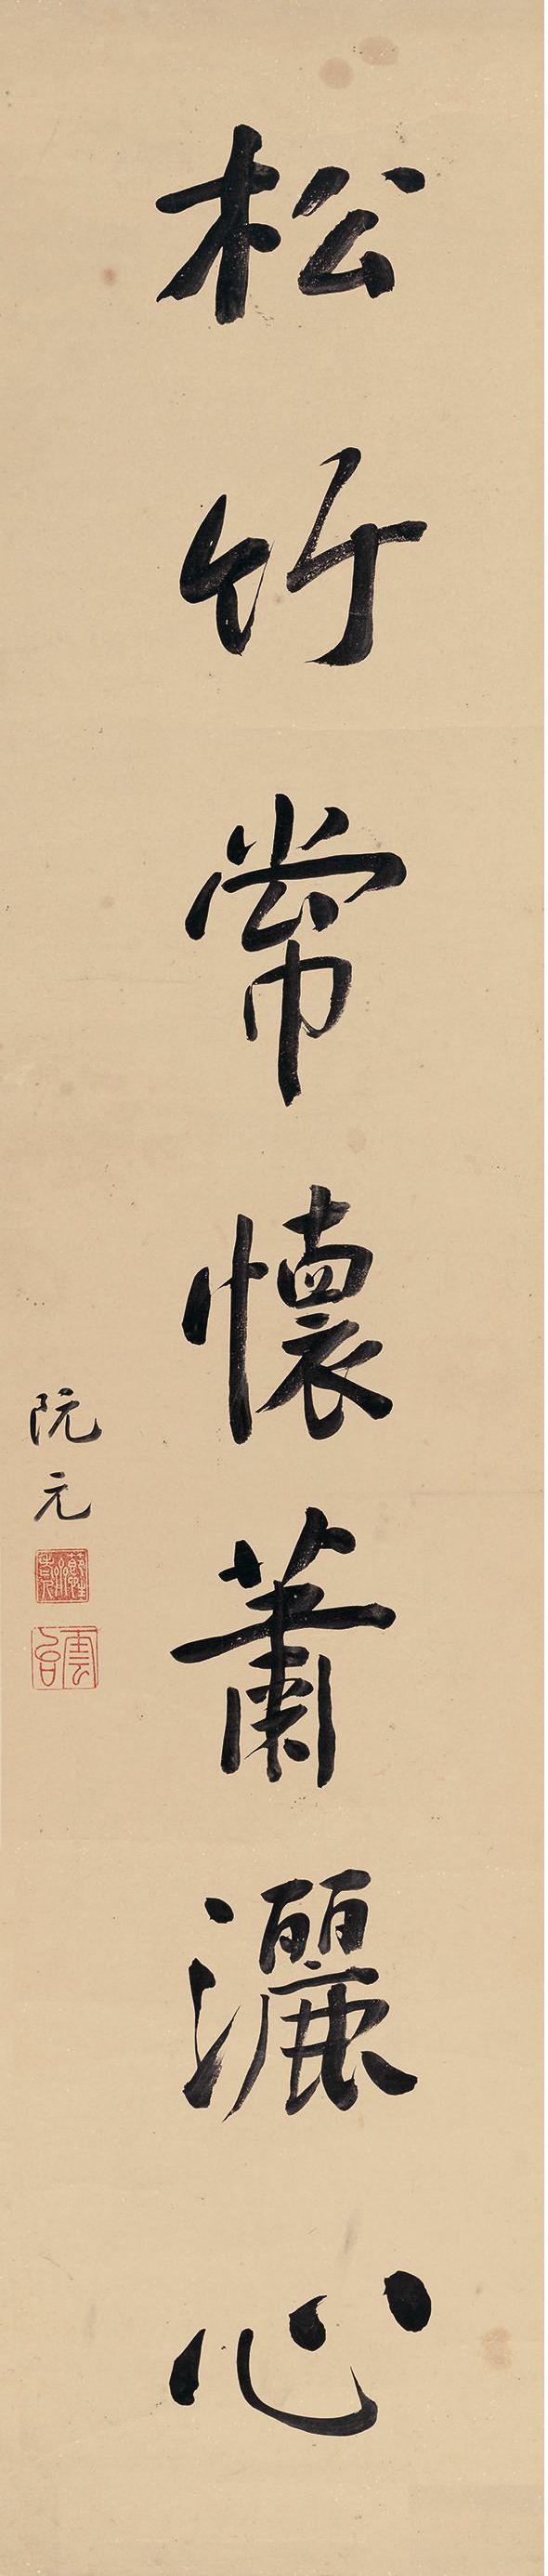 松竹常懷蕭灑心
阮元
雲台